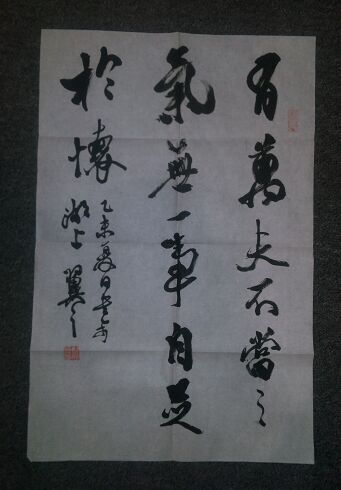 有萬夫不當之
氣無一事自足
於懷
乙未夏日
湖上翼之